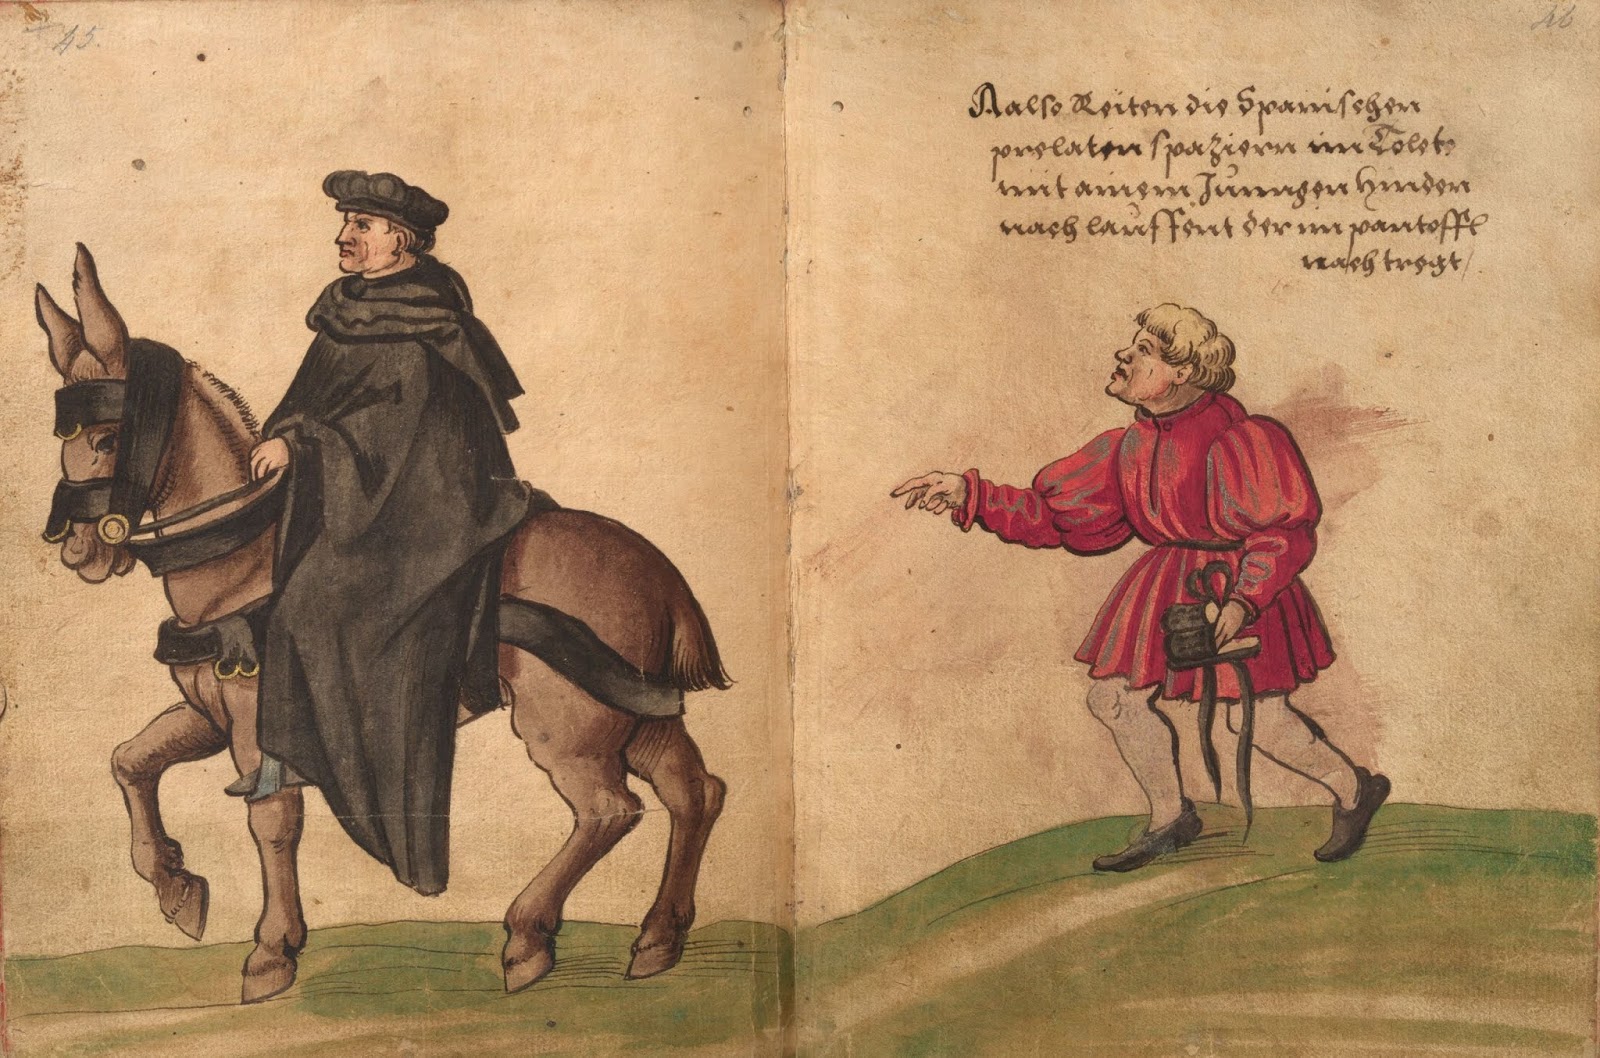 45.
46
Aalso Reiten die Spanischen
prelaten spaziern im Toleto
mit ainem Jungen hinden
nach lauffent der im pantoffl
nach tregt /